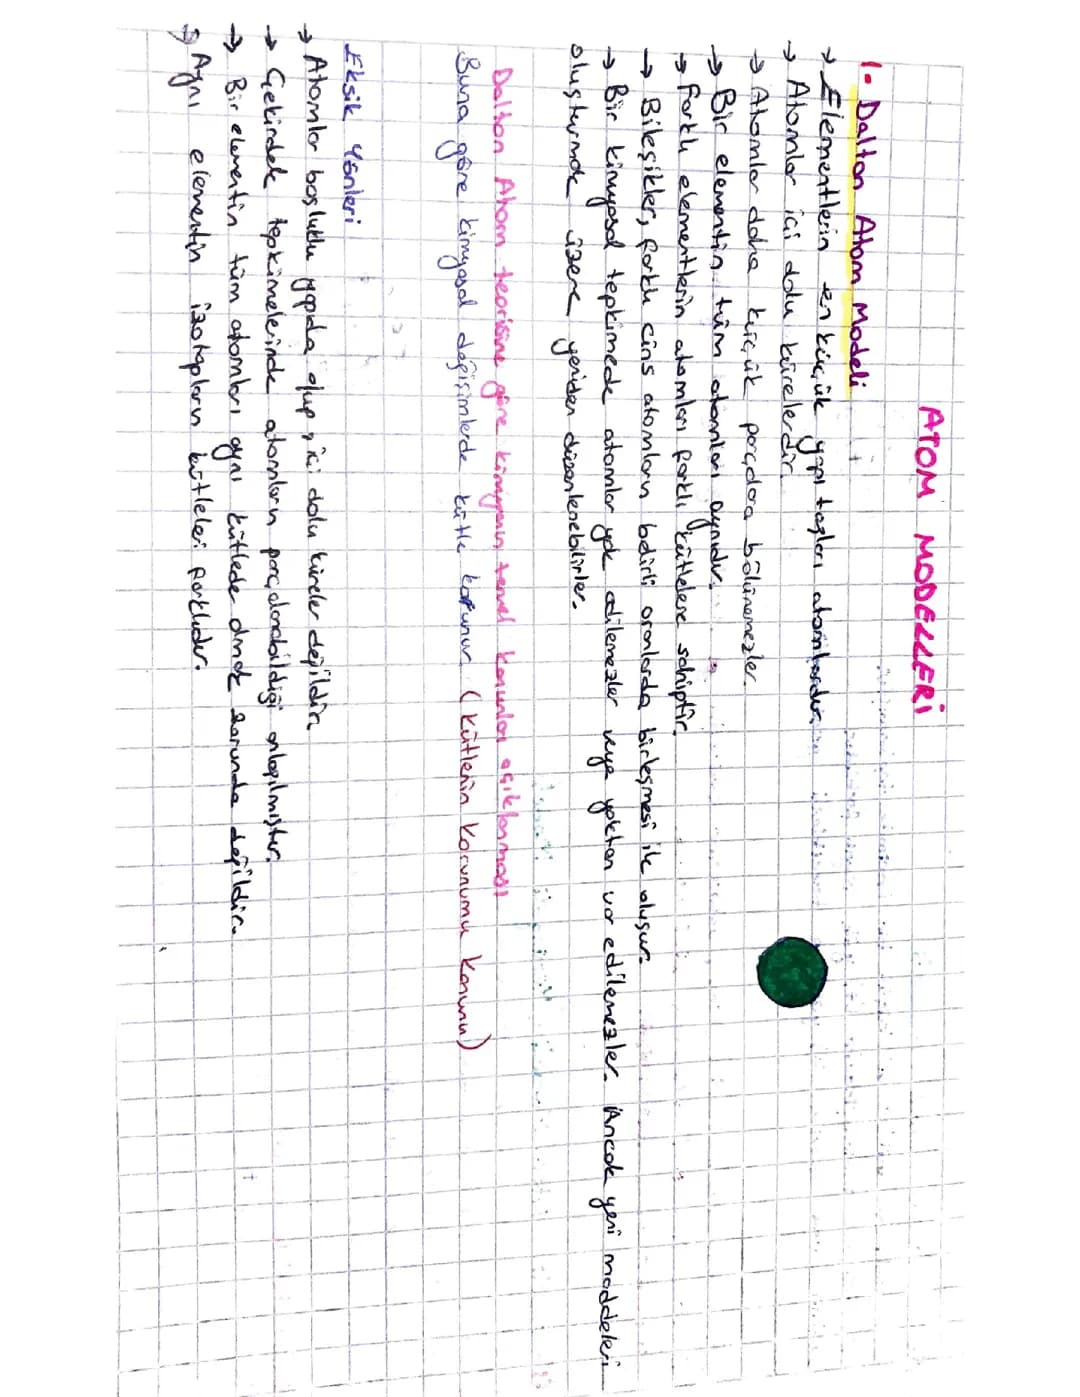 ATOM MODELLERİ
1- Dalton Atom Modeli
→ Elementlerin en küçük yapı taşları atomlardır.
→ Atomlar içi dolu kürelerdir.
→ Atomlar daha küçük parçlara bölünemezler.
→ Bir elementin tüm atomları aynıdır.
→ Farklı elementlerin atomları farklı kütlelere sahiptir.
→ Bileşikler, farklı cins atomların belirli oranlarda birleşmesi ile oluşur.
→ Bir kimyasal tepkimede atomlar yok edilemezler veya yoktan var edilemezler. Ancak yeni maddeleri
oluşturmak üzere yeniden düzenlenebilirler.
Dalton Atom teorisine göre kimyanın temel kanunları açıklanması
Buna göre kimyasal değişimlerde kütle korunur. (Kütlenin Korunumu Kanunu)
Eksik Yönleri
→ Atomlar boşluklu yapıda olup, içi dolu küreler değildir.
→ Çekirdek tepkimelerinde atomların parçalanabildiği anlaşılmıştır.
→ Bir elementin tüm atomları aynı kütlede olmak zorunda değildir.
→ Aynı elementin izotopların kütleleri farklıdır.